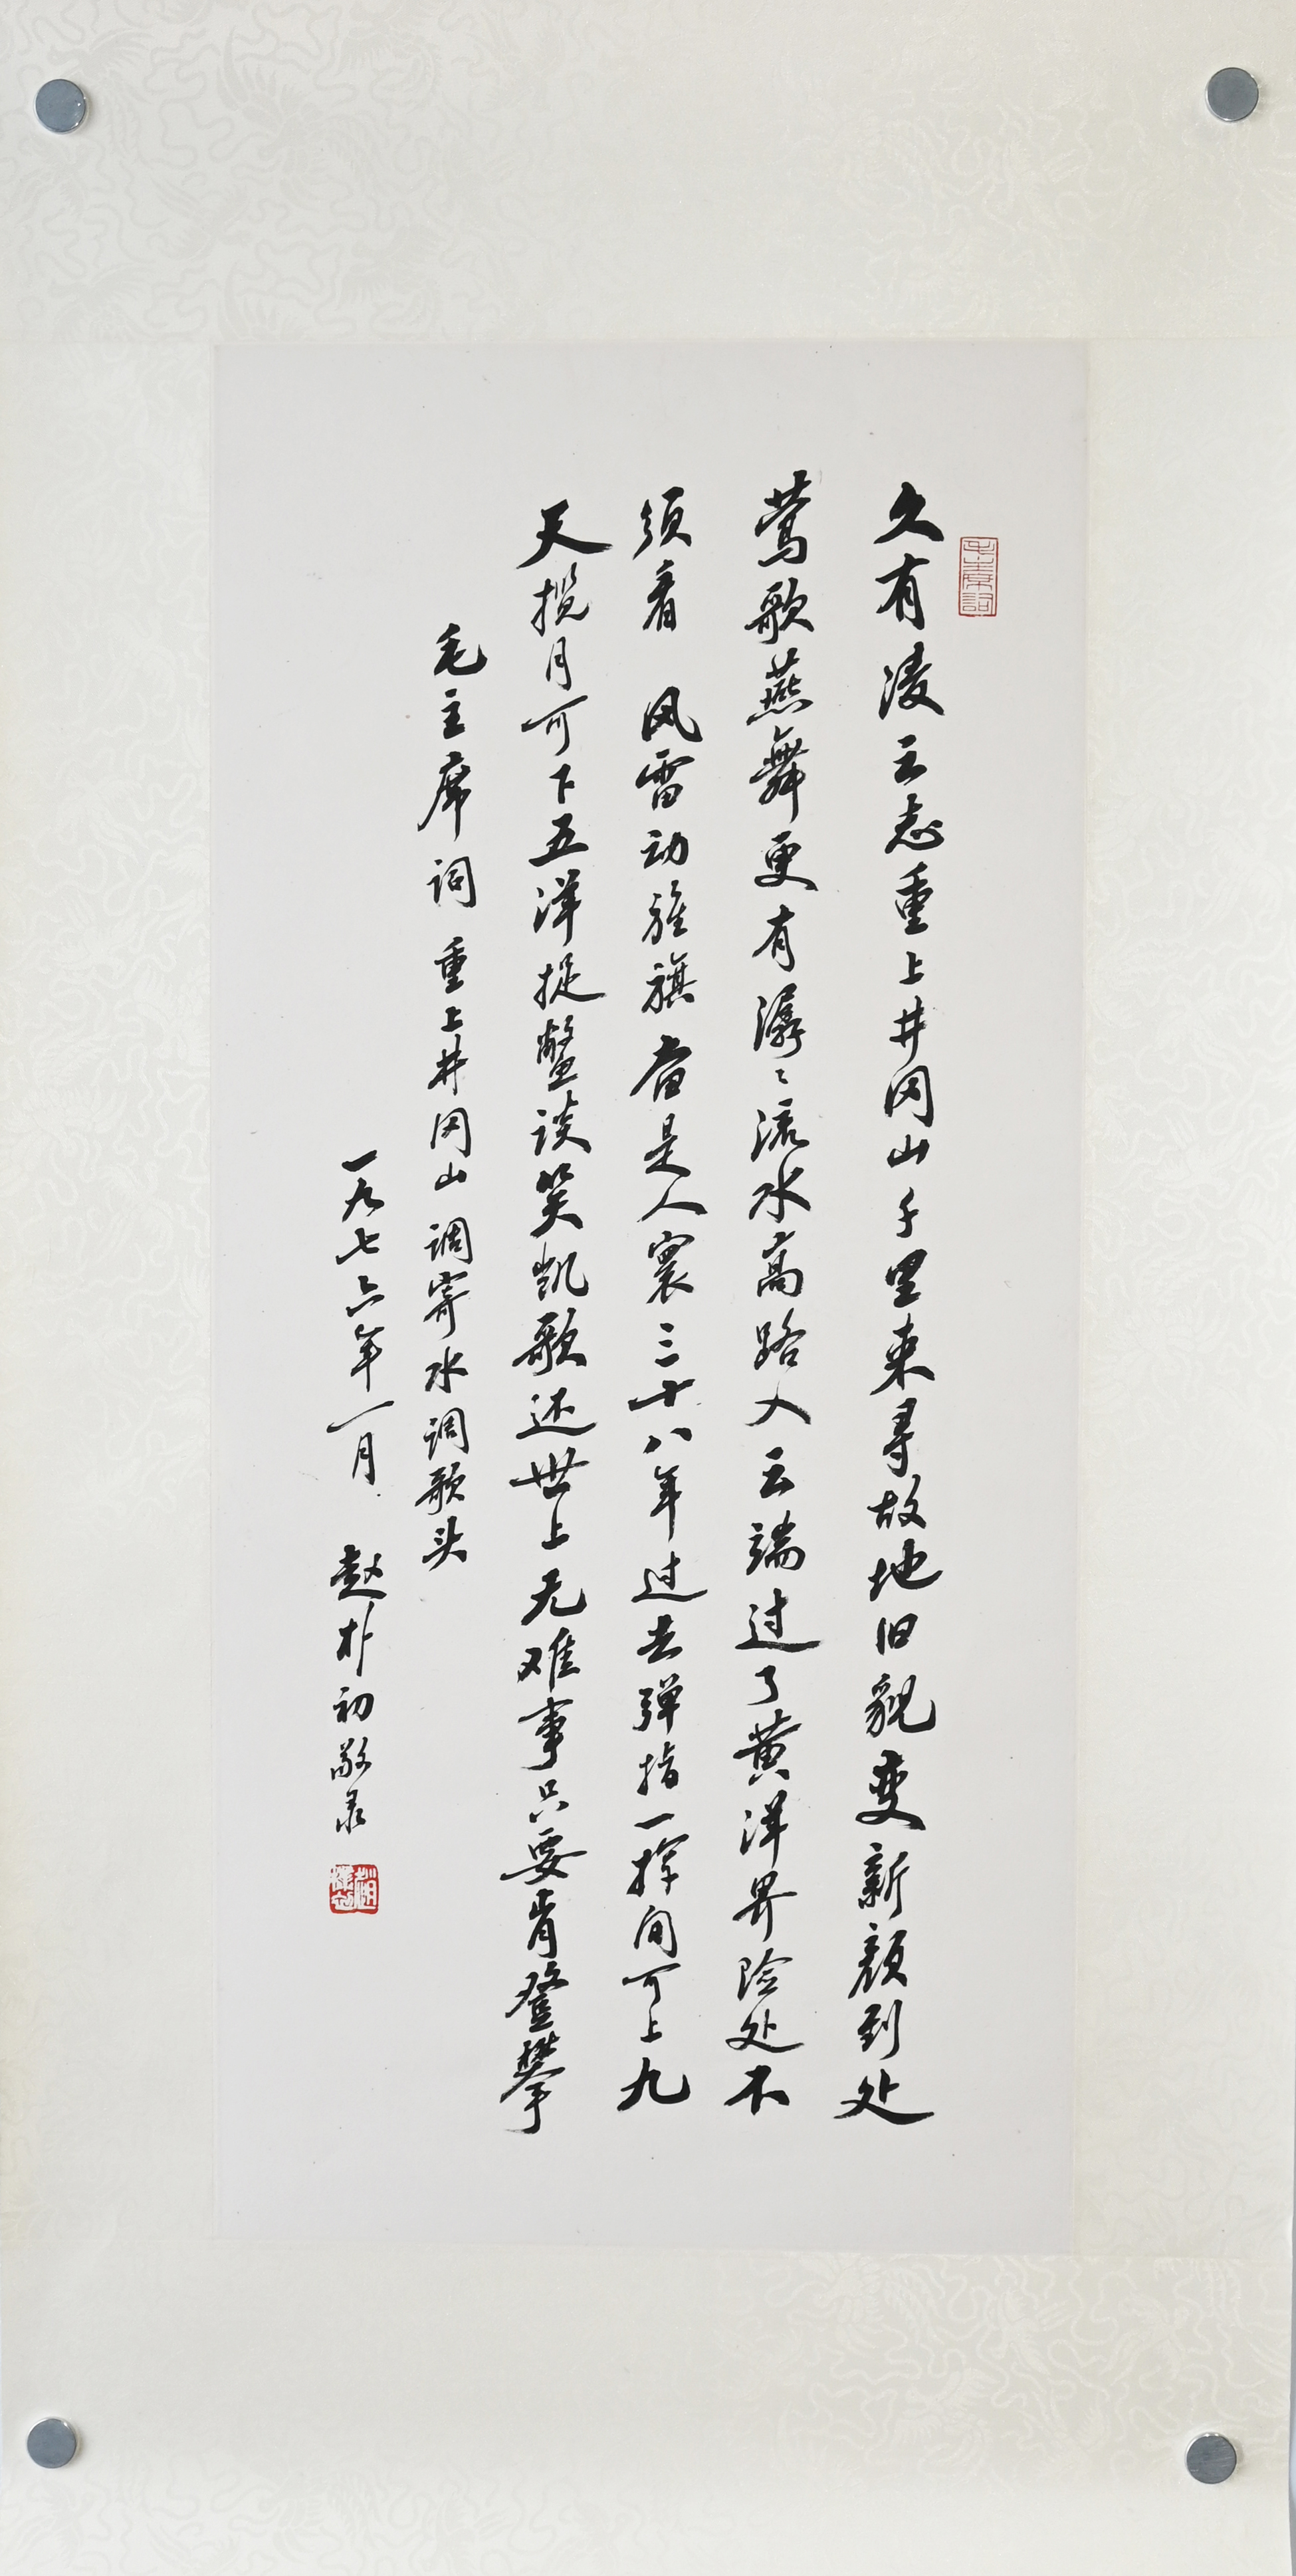 久有凌云志重上井冈山千里来寻故地旧貌变新颜到处
莺歌燕舞更有潺〻流水高路入云端过了黄洋界险处不
须看 风雷动旌旗奋是人寰三十八年过去弹指一挥间可上九
天揽月可下五洋捉鳖谈笑凯歌还世上无难事只要肯登攀
毛主席词 重上井冈山 调寄水调歌头
一九七六年一月 赵朴初敬录
毛主席词
赵朴初